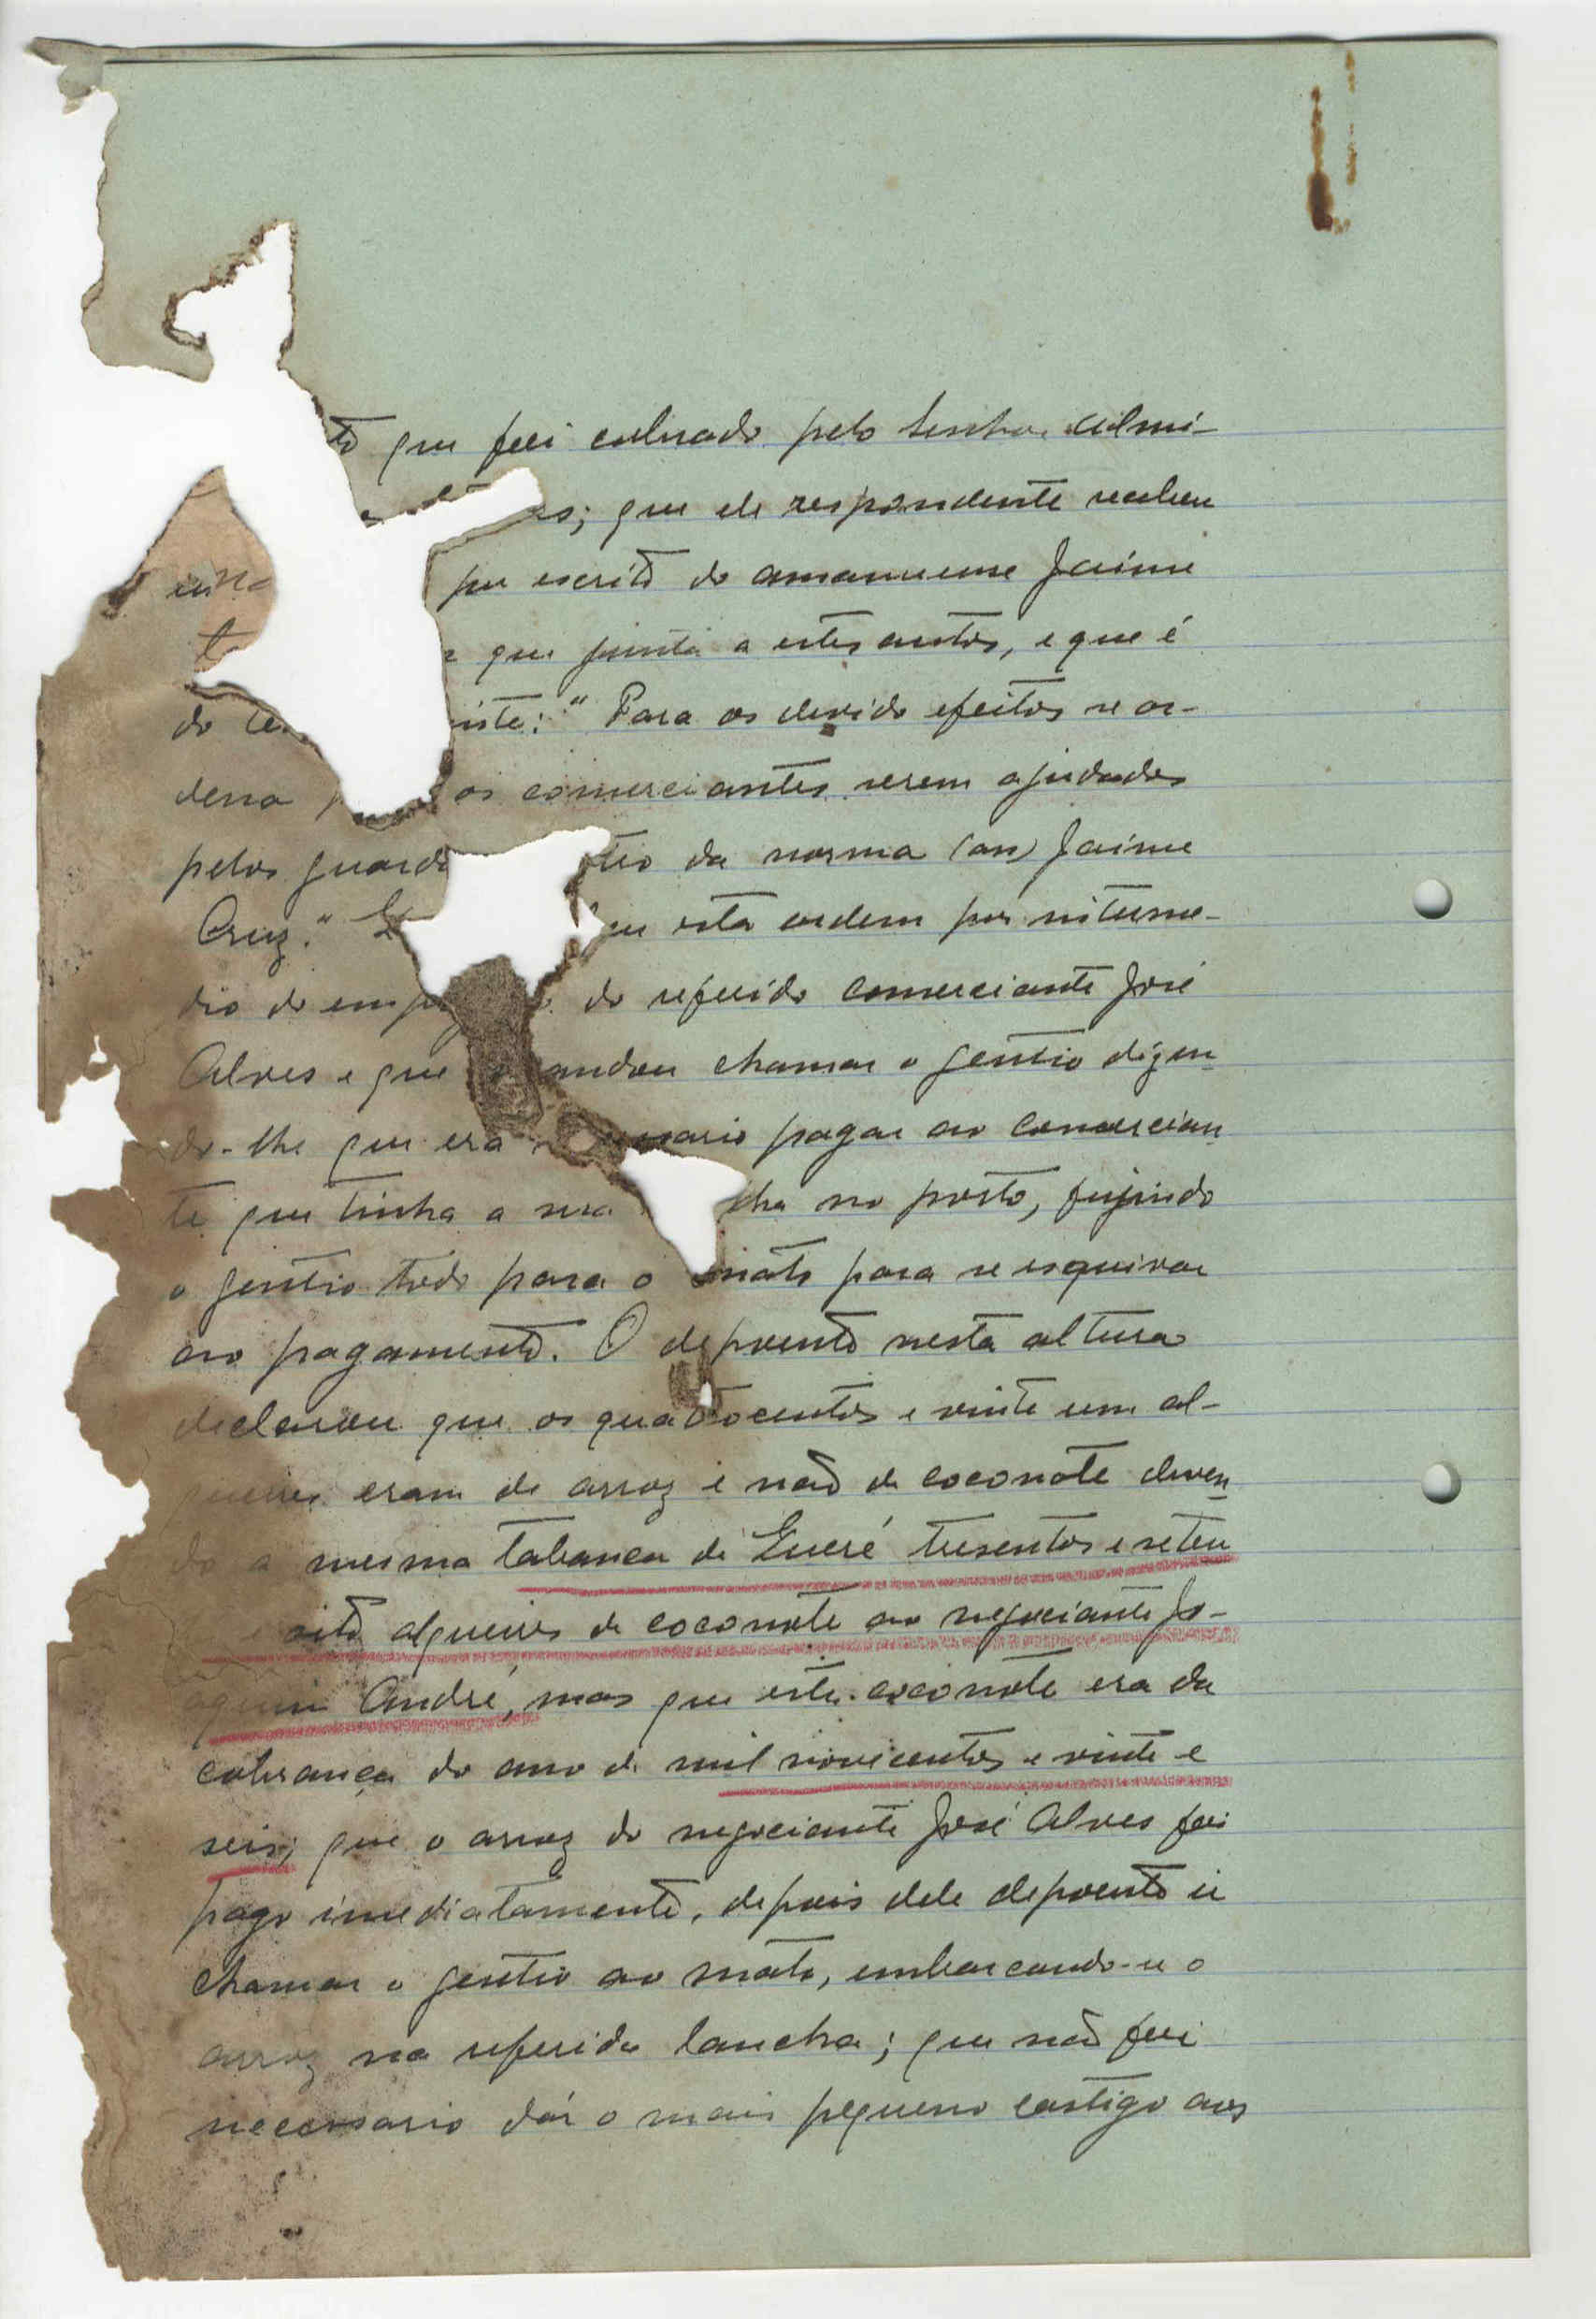 to que foi cobrado pelo Senhor Admi-
es; que ele respondente recebeu
uma por escrito do amanuense Jaime
que junta a estes autos, e que é
do te inte: "Para os devido efeitos se or-
dena os comerciantes serem ajudados
pelos guard tro da norma (an) Jaime
Cruz." eu esta ordem por niterme-
dio do emp do referido comerciante José
Alves e que andou chamar o gentio dizen-
do-lhe que era ssario pagar ao comercian
te que tinha a sua cha no porto, fugindo
o gentio todo para o mato para se esquivar
ao pagamento. O depoente nesta altura
declarou que os quatrocentos e vinte um al-
queires eram de arroz e não de coconote deven
do a mesma tabanca de tresentos e seten
oito alqueires de coconote ao negociante Jo-
aquim André, mas que este coconote era da
cobrança do ano de mil novicentos e vinte e
seis; que o arroz do negociante José Alves foi
pago imediatamente, depois dele depoente ir
chamar o gentio ao mato, embarcando-se o
arroz na referida lancha; que não foi
necessario dár o mais pequeno castigo aos